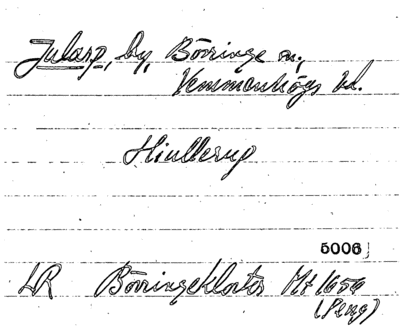 Jularp, by, Börringe sn,
Vemmenhögs hd.
Hiullerup
5006
LR Börringekloster Mt 1656
(Peng)